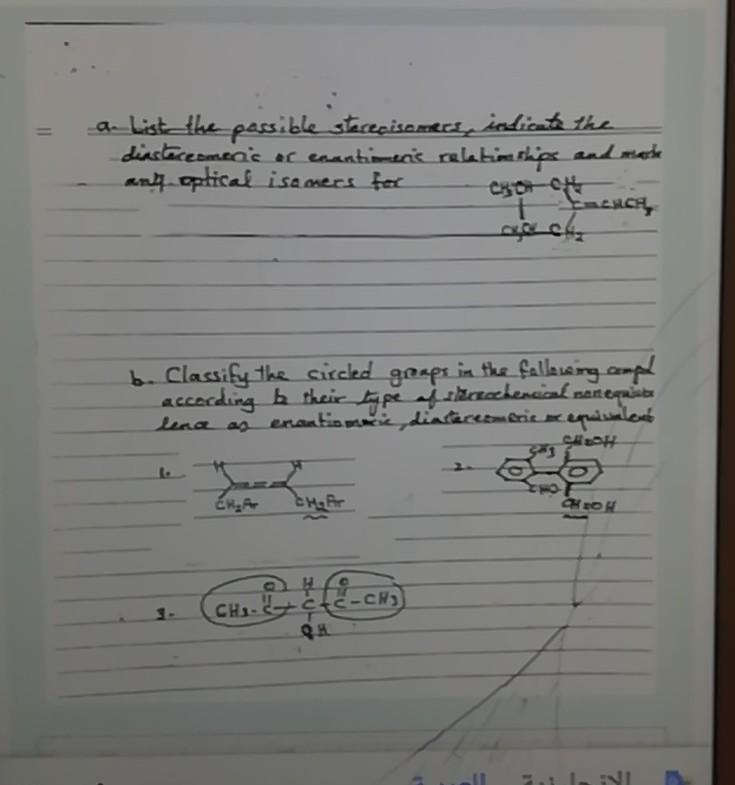 a. List the possible stereoisomers, indicate the
diastereomeric or enantiomeric relationships and mark
any optical isomers for
CH3CH CH2
C=CHCH3
CH3CH CH2
b. Classify the circled groups in the following compd
according to their type of stereochemical nonequiva
lence as enantiomeric, diastereomeric or equivalent
1.
H H
CH2Ar CH2Ar
2.
CH2OH
CH3
CHO
CH2OH
3.
O H O
CH3-C-C-C-CH3
OH
العربية الإنجليزية